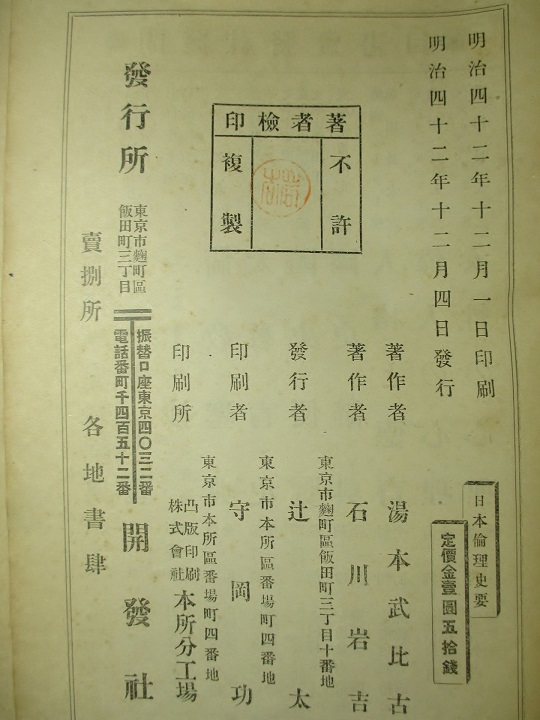 明治四十二年十二月一日印刷
明治四十二年十二月四日發行
日本倫理史要
定價金壹圓五拾錢
著者檢印
不許
複製
著作者 湯本武比古
著作者 石川岩吉
東京市麹町區飯田町三丁目十番地
發行者 辻太
東京市本所區番場町四番地
印刷者 守岡功
東京市本所區番場町四番地
印刷所 凸版印刷株式會社 本所分工場
發行所 東京市麹町區飯田町三丁目 開發社
振替口座東京四〇三二番
電話番町千四百五十二番
賣捌所 各地書肆